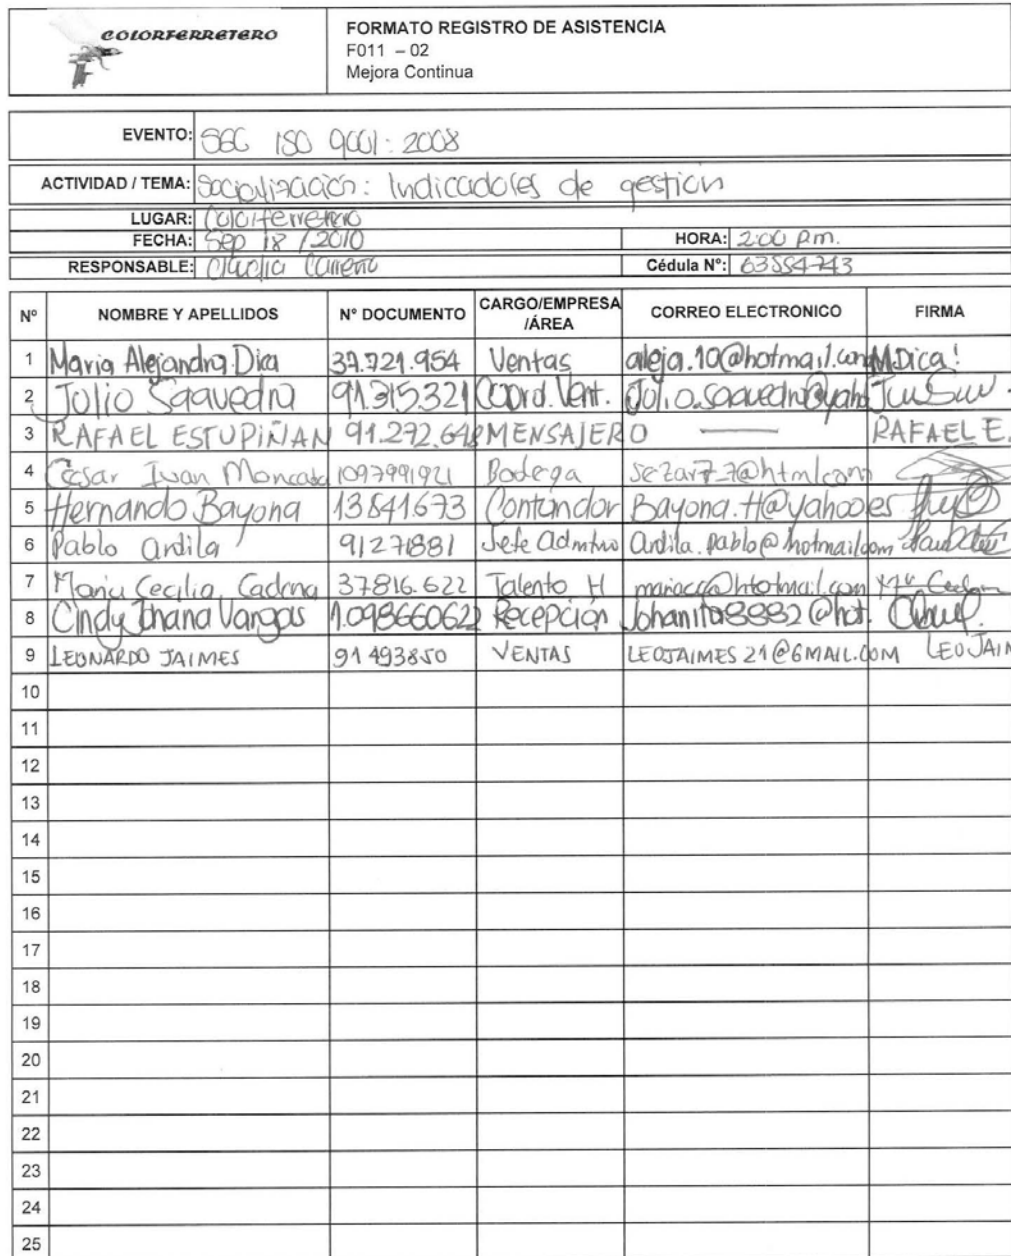 COLORFERRETERO
FORMATO REGISTRO DE ASISTENCIA
F011 – 02
Mejora Continua
EVENTO: SGC ISO 9001:2008
ACTIVIDAD / TEMA: Socialización: Indicadores de gestión
LUGAR: Colorferretero
FECHA: Sep 18 / 2010 HORA: 2:00 p.m.
RESPONSABLE: Claudia Carreño Cédula Nº: 63554743
Nº NOMBRE Y APELLIDOS Nº DOCUMENTO CARGO/EMPRESA /ÁREA CORREO ELECTRONICO FIRMA
1 Maria Alejandra Dica 37.721.954 Ventas aleja.10@hotmail.com M.Dica!
2 Julio Saavedra 91.315.321 Coord. Vent. Julio.saavedra@yah
3 RAFAEL ESTUPIÑAN 91.272.648 MENSAJERO — RAFAEL E.
4 Cesar Ivan Moncada 1097991921 Bodega sezar7_7@htmlcom
5 Hernando Bayona 13841673 Contundor Bayona.H@yahooes
6 Pablo ardila 91271881 Jefe admtvo ardila.pablo@hotmailcom
7 Maria Cecilia Cadena 37816.622 Talento H mariacc@htotmail.com Ma Cadena
8 Cindy Johana Vargas 1.098660622 Recepción Johanita8882@hot.
9 LEONARDO JAIMES 91493850 VENTAS LEOJAIMES21@GMAIL.COM LEOJAIM
10
11
12
13
14
15
16
17
18
19
20
21
22
23
24
25